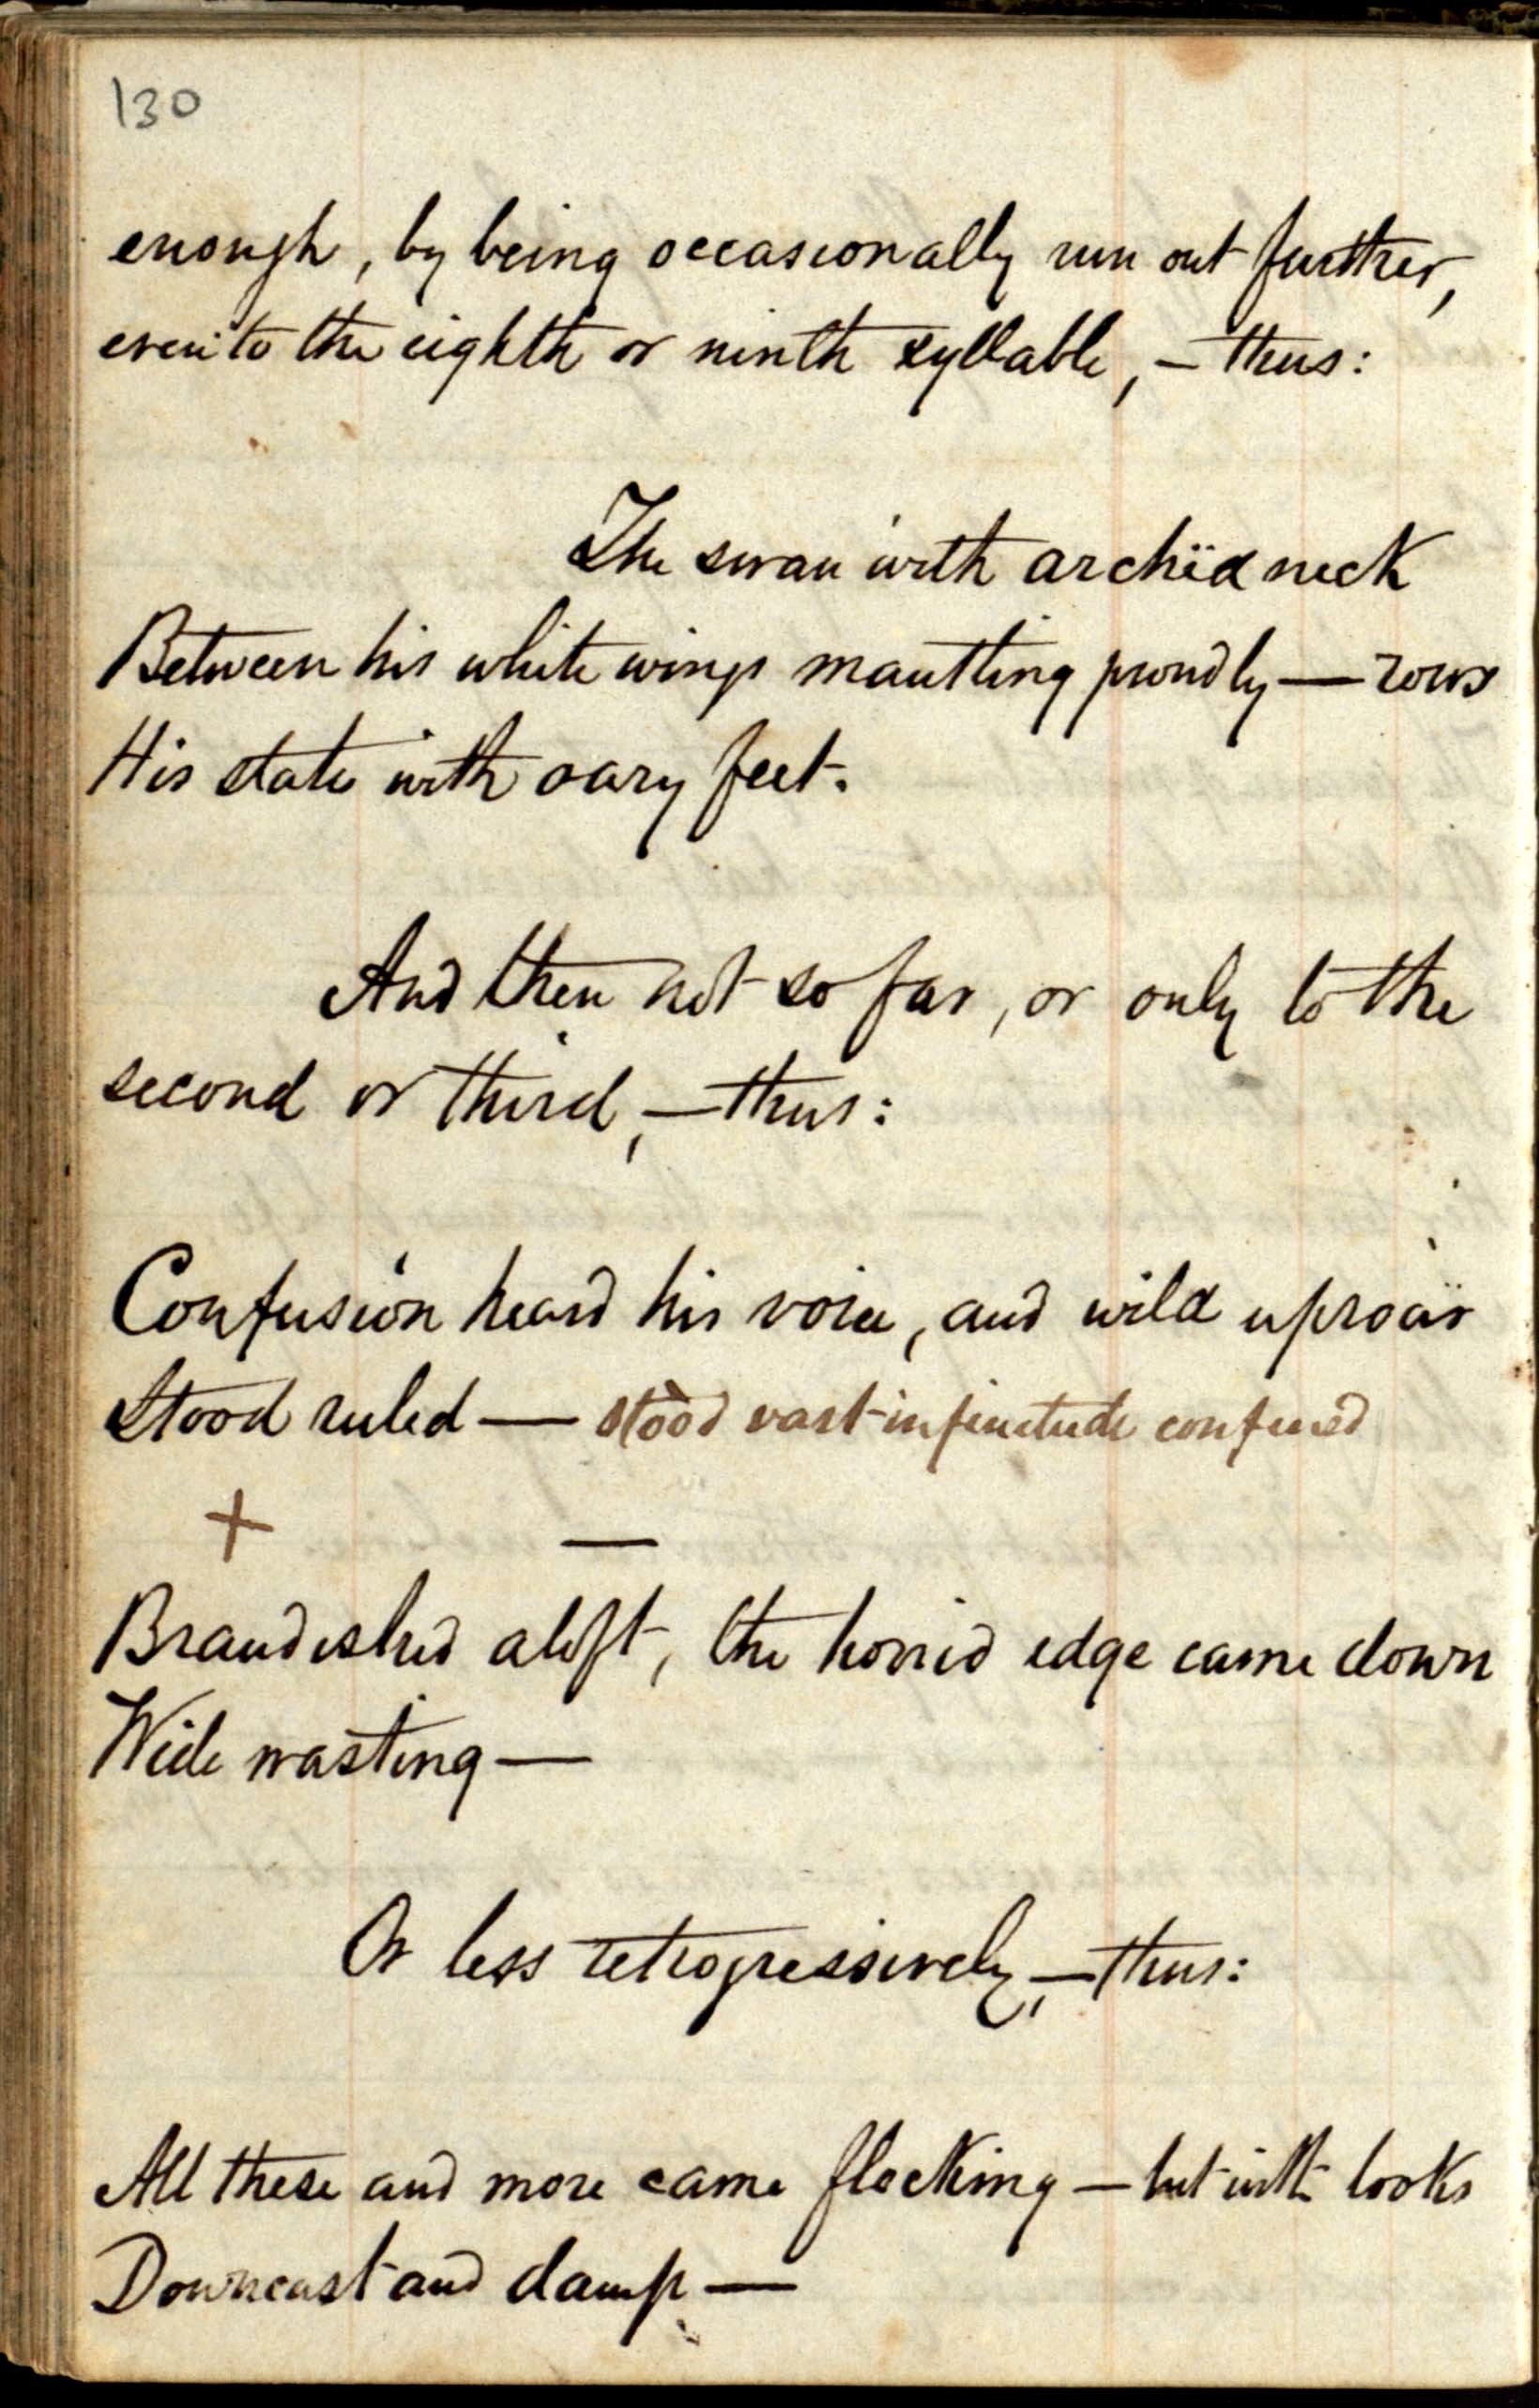 130
enough, by being occasionally run out further,
even to the eighth or ninth syllable, — thus:
The swan with archëd neck
Between his white wings mantling proudly — rows
His state with oary feet.
And then not so far, or only to the
second or third, — thus:
Confusion heard his voice, and wild uproar
Stood ruled — stood vast infinitude confined
+
—
Brandished aloft, the horrid edge came down
Wide wasting —
Or less retrogressively, — thus:
All these and more came flocking — but with looks
Downcast and damp —